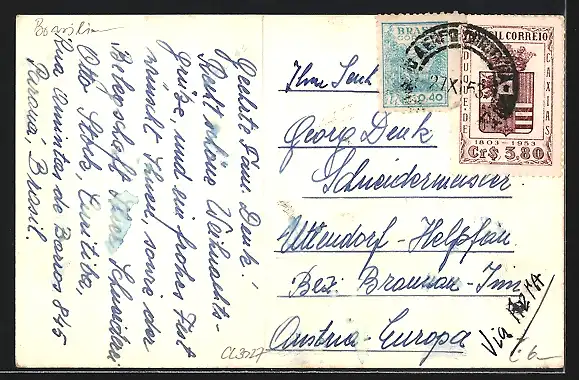 Brasilien
Geehrte Fam. Denk!
Recht schöne Weihnachts-
grüße, und ein frohes Fest
wünscht Ihnen, sowie der
Belegschaft Ihrer Schneiderei
Otto Stork, Curitiba,
Rua Amintas de Barros 845
Paraná, Brasil.
BRASIL
CORREIO
0,40
AEREO
27 XI 53
BRASIL CORREIO
DUQUE DE
CAXIAS
1803-1953
Cr$ 3,80
Georg Denk
Schneidermeister
Uttendorf-Helpfau
Bez. Braunau-Inn
Austria-Europa
Via
CL3527